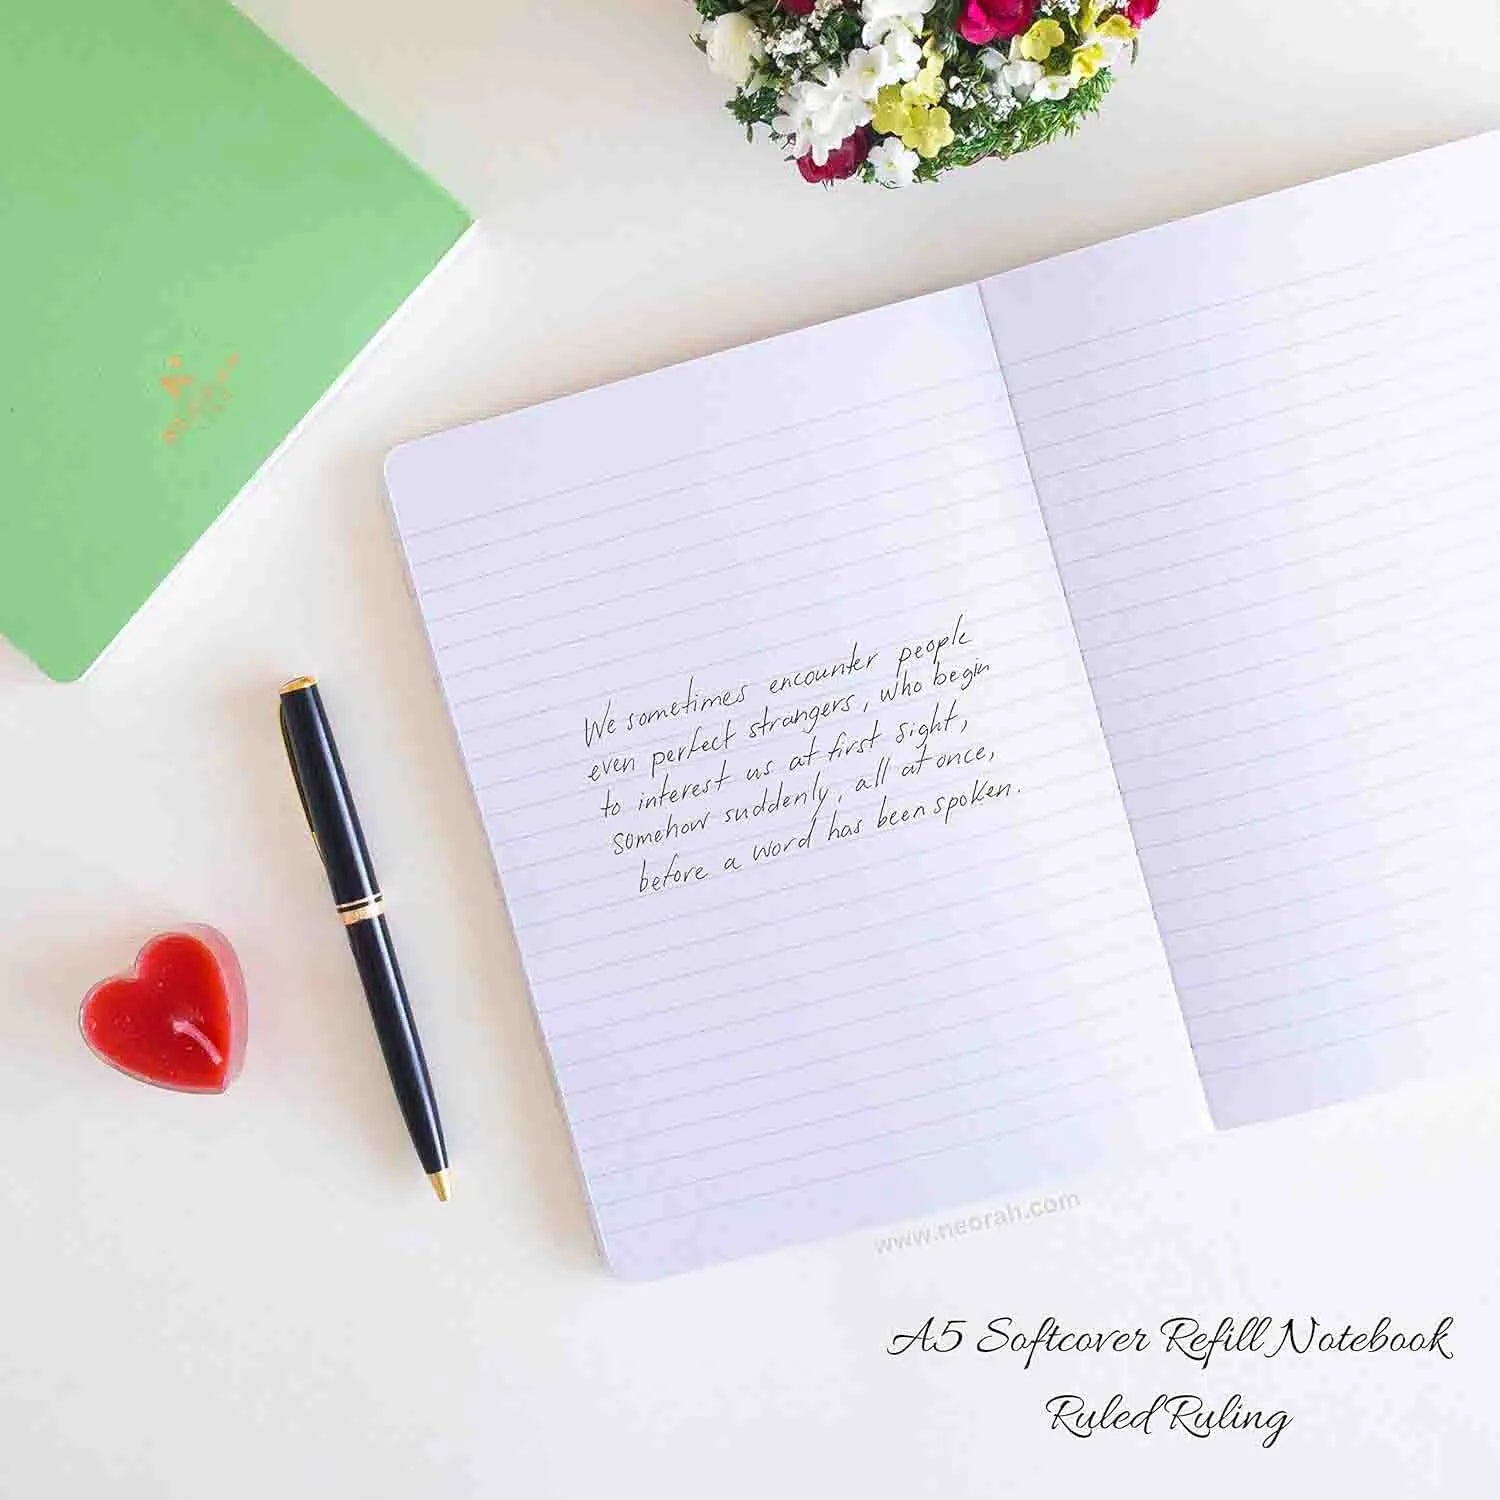 We sometimes encounter people
even perfect strangers, who begin
to interest us at first sight,
somehow suddenly, all at once,
before a word has been spoken.
www.neorah.com
A5 Softcover Refill Notebook
Ruled Ruling